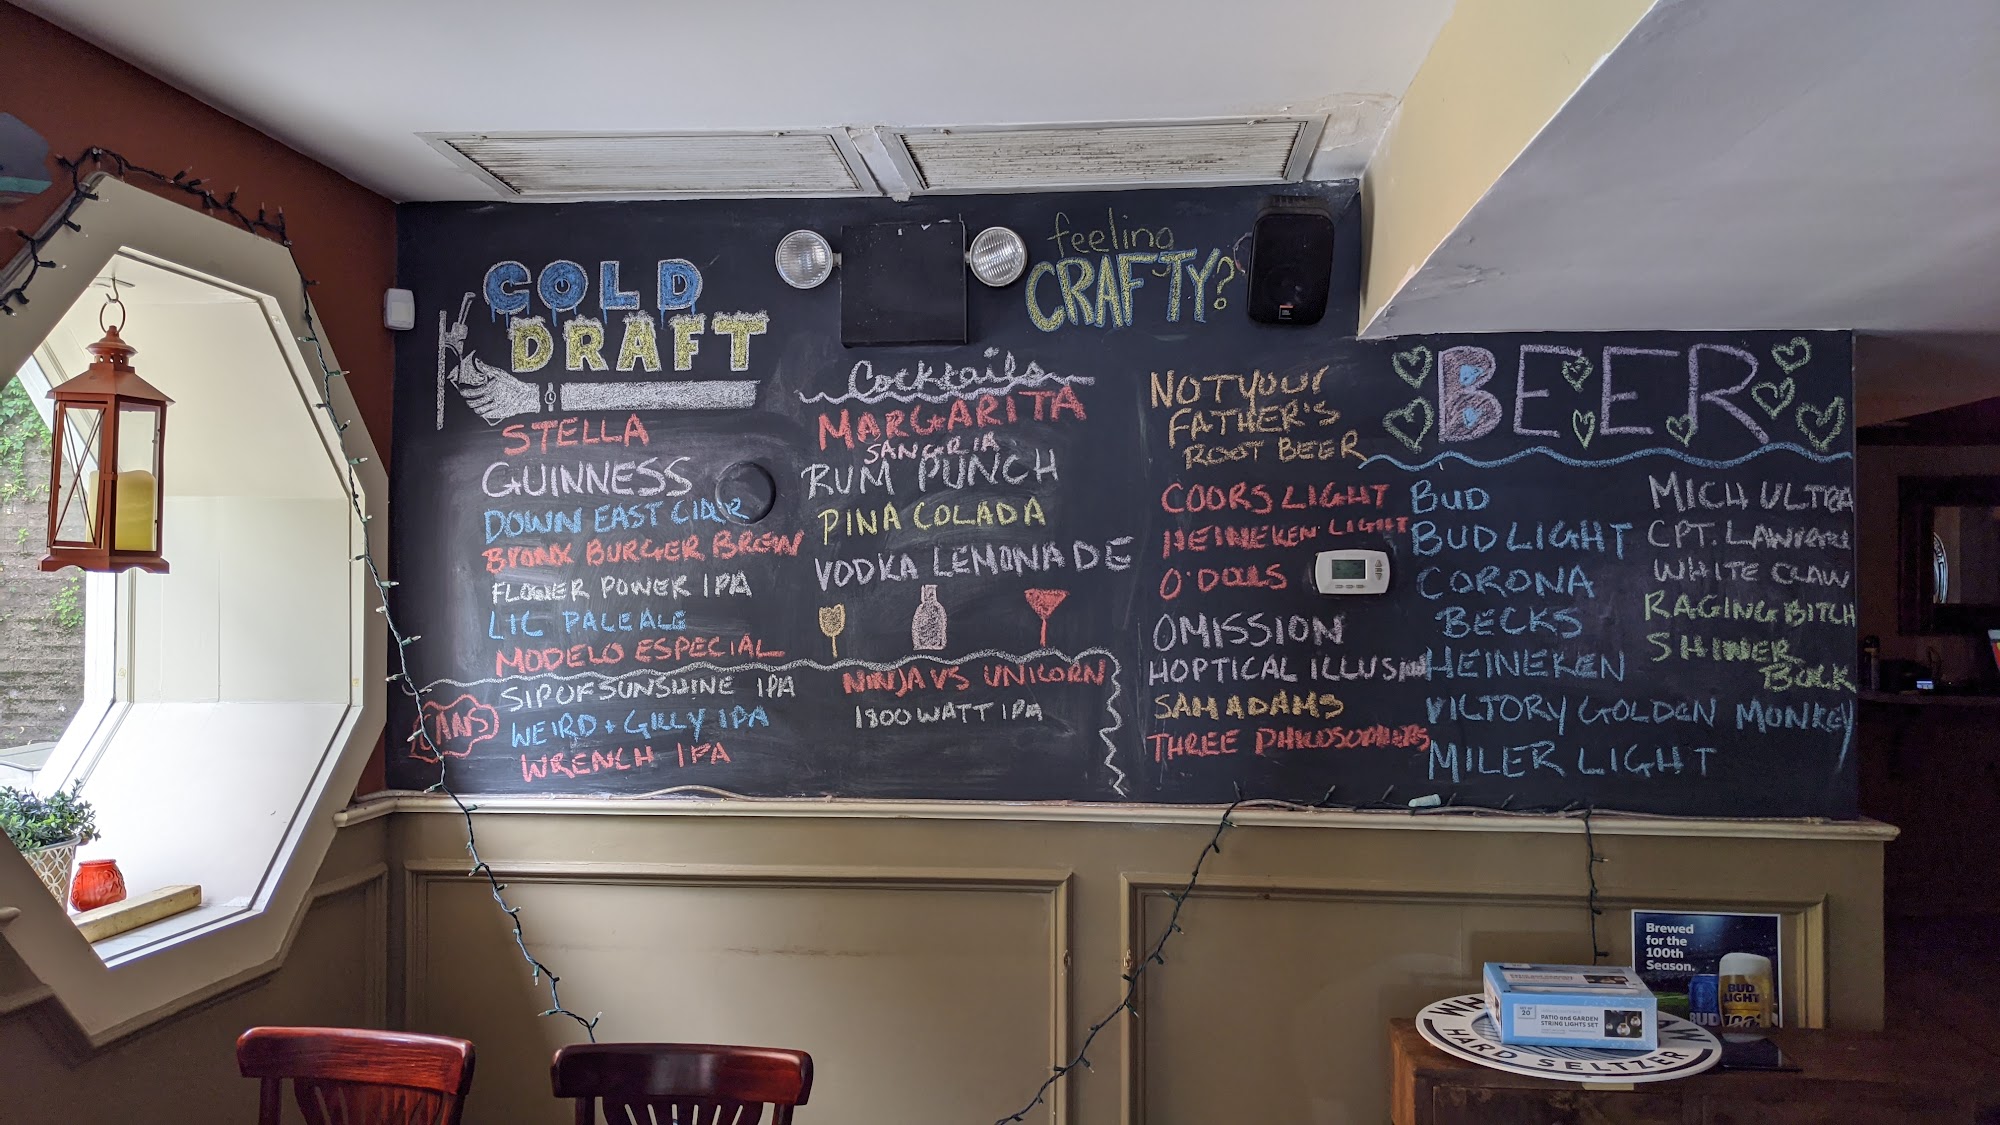 COLD
DRAFT
STELLA
GUINNESS
DOWN EAST CIDER
BRONX BURGER BREW
FLOWER POWER IPA
LIC PALE ALE
MODELO ESPECIAL
CANS
SIP OF SUNSHINE IPA
WEIRD + GILLY IPA
WRENCH IPA
Cocktails
MARGARITA
SANGRIA
RUM PUNCH
PINA COLADA
VODKA LEMONADE
NINJA VS UNICORN
1800 WATT IPA
feeling
CRAFTY?
NOT YOUR
FATHER'S
ROOT BEER
COORS LIGHT
HEINEKEN LIGHT
O'DOULS
OMISSION
HOPTICAL ILLUSION
SAM ADAMS
THREE PHILOSOPHERS
BEER
BUD
BUD LIGHT
CORONA
BECKS
HEINEKEN
VICTORY GOLDEN MONKEY
MILER LIGHT
MICH ULTRA
CPT. LAWRENCE
WHITE CLAW
RAGING BITCH
SHINER
BOCK
Brewed
for the
100th
Season.
BUD
LIGHT
BUD
SET OF
20
PATIO and GARDEN
STRING LIGHTS SET
HARD SELTZER